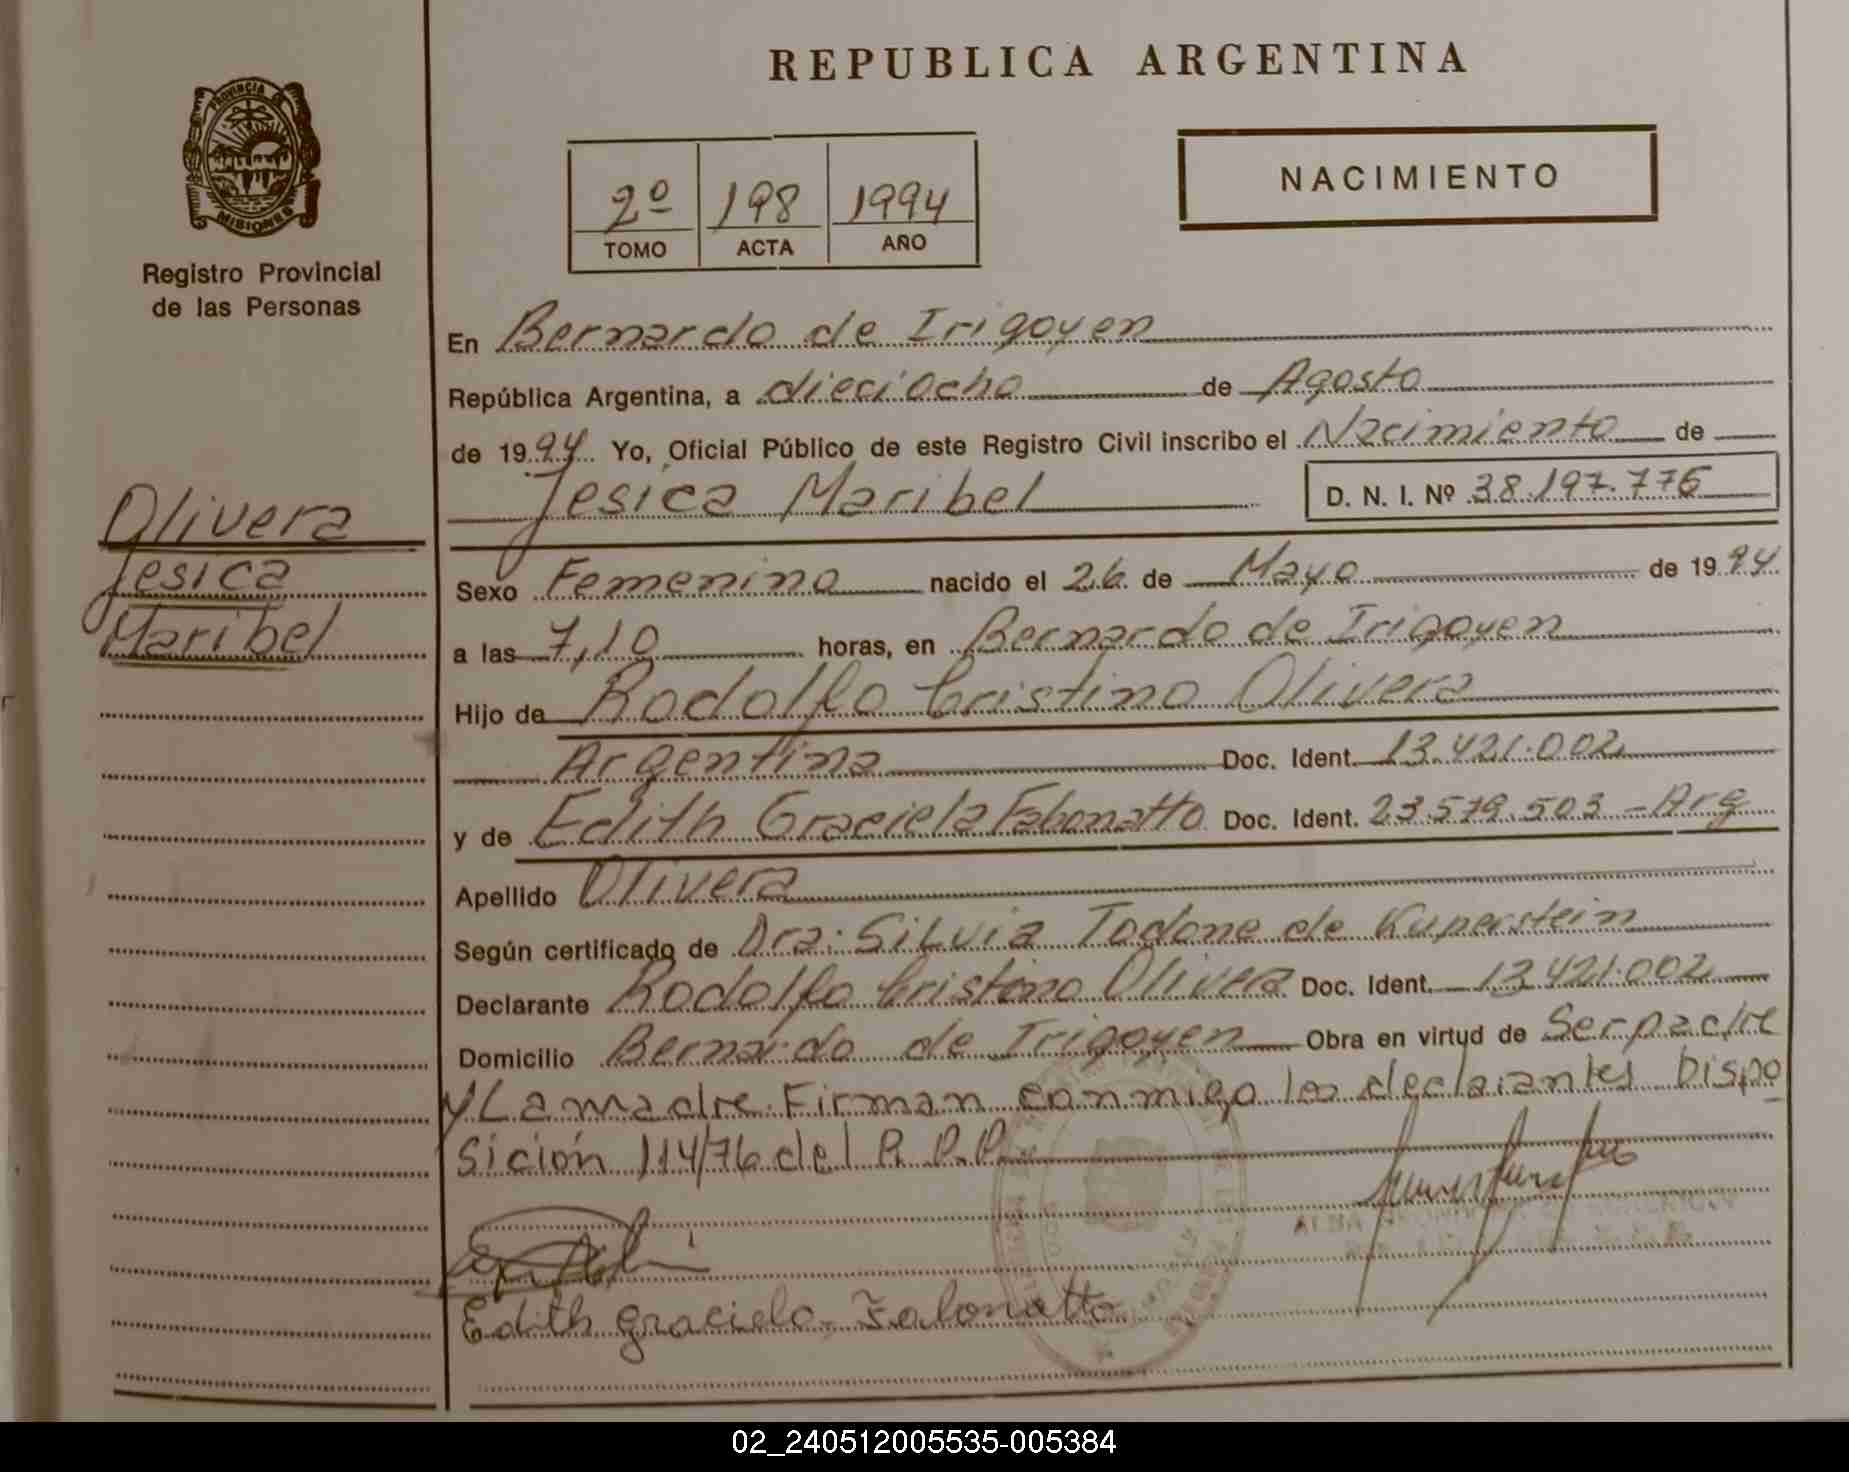 REPUBLICA ARGENTINA
PROVINCIA DE
MISIONES
Registro Provincial
de las Personas
2º 198 1994
TOMO ACTA AÑO
NACIMIENTO
En Bernardo de Irigoyen
República Argentina, a dieciocho de Agosto
de 1994 Yo, Oficial Público de este Registro Civil inscribo el Nacimiento de
Jesica Maribel D. N. I. Nº 38.197.776
Olivera
Jesica
Maribel
Sexo Femenino nacido el 26 de Mayo de 1994
a las 7,10 horas, en Bernardo de Irigoyen
Hijo de Rodolfo Cristino Olivera
Argentina Doc. Ident. 13.421.002
y de Edith Graciela Fabonatto Doc. Ident. 23.579.503 - Arg
Apellido Olivera
Según certificado de Dra. Silvia Todone de Kuperstein
Declarante Rodolfo Cristino Olivera Doc. Ident. 13.421.002
Domicilio Bernardo de Irigoyen Obra en virtud de Ser padre
y La madre. Firman conmigo los declarantes Dispo
sición 114/76 del R. P. P.
Edith Graciela Fabonatto
02_240512005535-005384